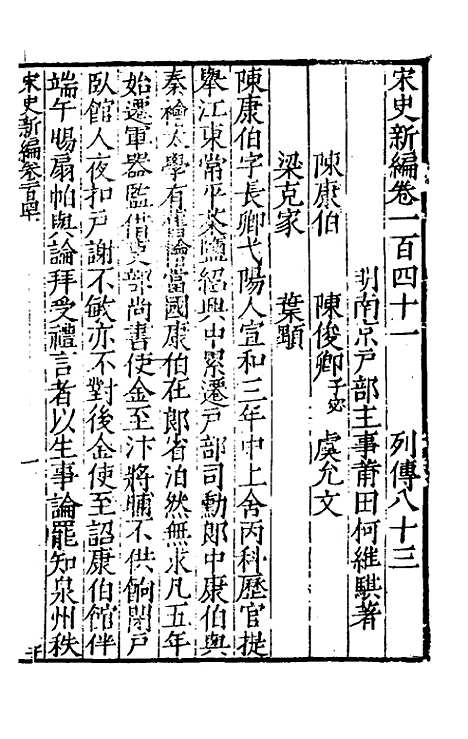 宋史新編卷一百四十一　　列傳八十三
明南京戶部主事莆田何維騏著
陳康伯　陳俊卿子宓　虞允文
梁克家　葉顒
陳康伯字長卿弋陽人宣和三年中上舍丙科歷官提
舉江東常平茶鹽紹興中累遷戶部司勳郎中康伯與
秦檜太學有舊檜當國康伯在郎省泊然無求凡五年
始遷軍器監借吏部尚書使金至汴將晡不供餉閉戶
臥館人夜扣戶謝不敏亦不對後金使至詔康伯館伴
端午賜扇帕與論拜受禮言者以生事論罷知泉州秩
宋史新編卷一百四十一